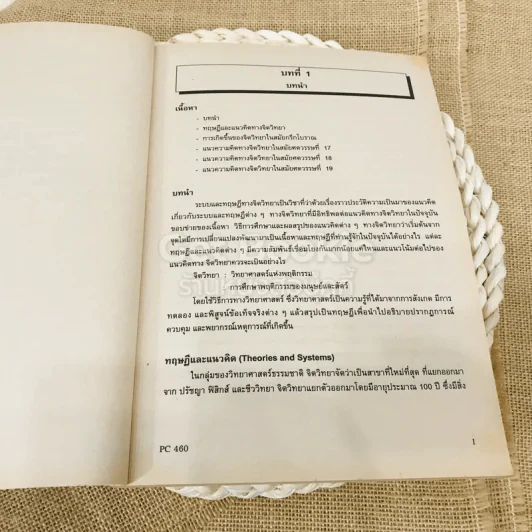 บทที่ 1
บทนำ
เนื้อหา
- บทนำ
- ทฤษฎีและแนวคิดทางจิตวิทยา
- การเกิดขึ้นของจิตวิทยาในสมัยกรีกโบราณ
- แนวความคิดทางจิตวิทยาในสมัยศตวรรษที่ 17
- แนวความคิดทางจิตวิทยาในสมัยศตวรรษที่ 18
- แนวความคิดทางจิตวิทยาในสมัยศตวรรษที่ 19
บทนำ
ระบบและทฤษฎีทางจิตวิทยาเป็นวิชาที่ว่าด้วยเรื่องราวประวัติความเป็นมาของแนวคิด
เกี่ยวกับระบบและทฤษฎีต่าง ๆ ทางจิตวิทยาที่มีอิทธิพลต่อแนวคิดทางจิตวิทยาในปัจจุบัน
ขอบข่ายของเนื้อหา วิธีการศึกษาและผลสรุปของแนวคิดต่าง ๆ ทางจิตวิทยาว่าเริ่มต้นจาก
จุดใดมีการเปลี่ยนแปลงพัฒนามาเป็นเนื้อหาและทฤษฎีที่ท่านรู้จักในปัจจุบันได้อย่างไร แต่ละ
ทฤษฎีแนวคิดต่าง ๆ มีความสัมพันธ์เชื่อมโยงกันมากน้อยแค่ไหนและแนวโน้มต่อไปของ
แนวคิดทาง จิตวิทยาควรจะเป็นอย่างไร
จิตวิทยา : วิทยาศาสตร์แห่งพฤติกรรม
การศึกษาพฤติกรรมของมนุษย์และสัตว์
โดยใช้วิธีการทางวิทยาศาสตร์ ซึ่งวิทยาศาสตร์เป็นความรู้ที่ได้มาจากการสังเกต มีการ
ทดลอง และพิสูจน์ข้อเท็จจริงต่าง ๆ แล้วสรุปเป็นทฤษฎีเพื่อนำไปอธิบายปรากฏการณ์
ควบคุม และพยากรณ์เหตุการณ์ที่เกิดขึ้น
ทฤษฎีและแนวคิด (Theories and Systems)
ในกลุ่มของวิทยาศาสตร์ธรรมชาติ จิตวิทยาจัดว่าเป็นสาขาที่ใหม่ที่สุด ที่แยกออกมา
จาก ปรัชญา ฟิสิกส์ และชีววิทยา จิตวิทยาแยกตัวออกมาโดยมีอายุประมาณ 100 ปี ซึ่งมีสิ่ง
PC 460
1